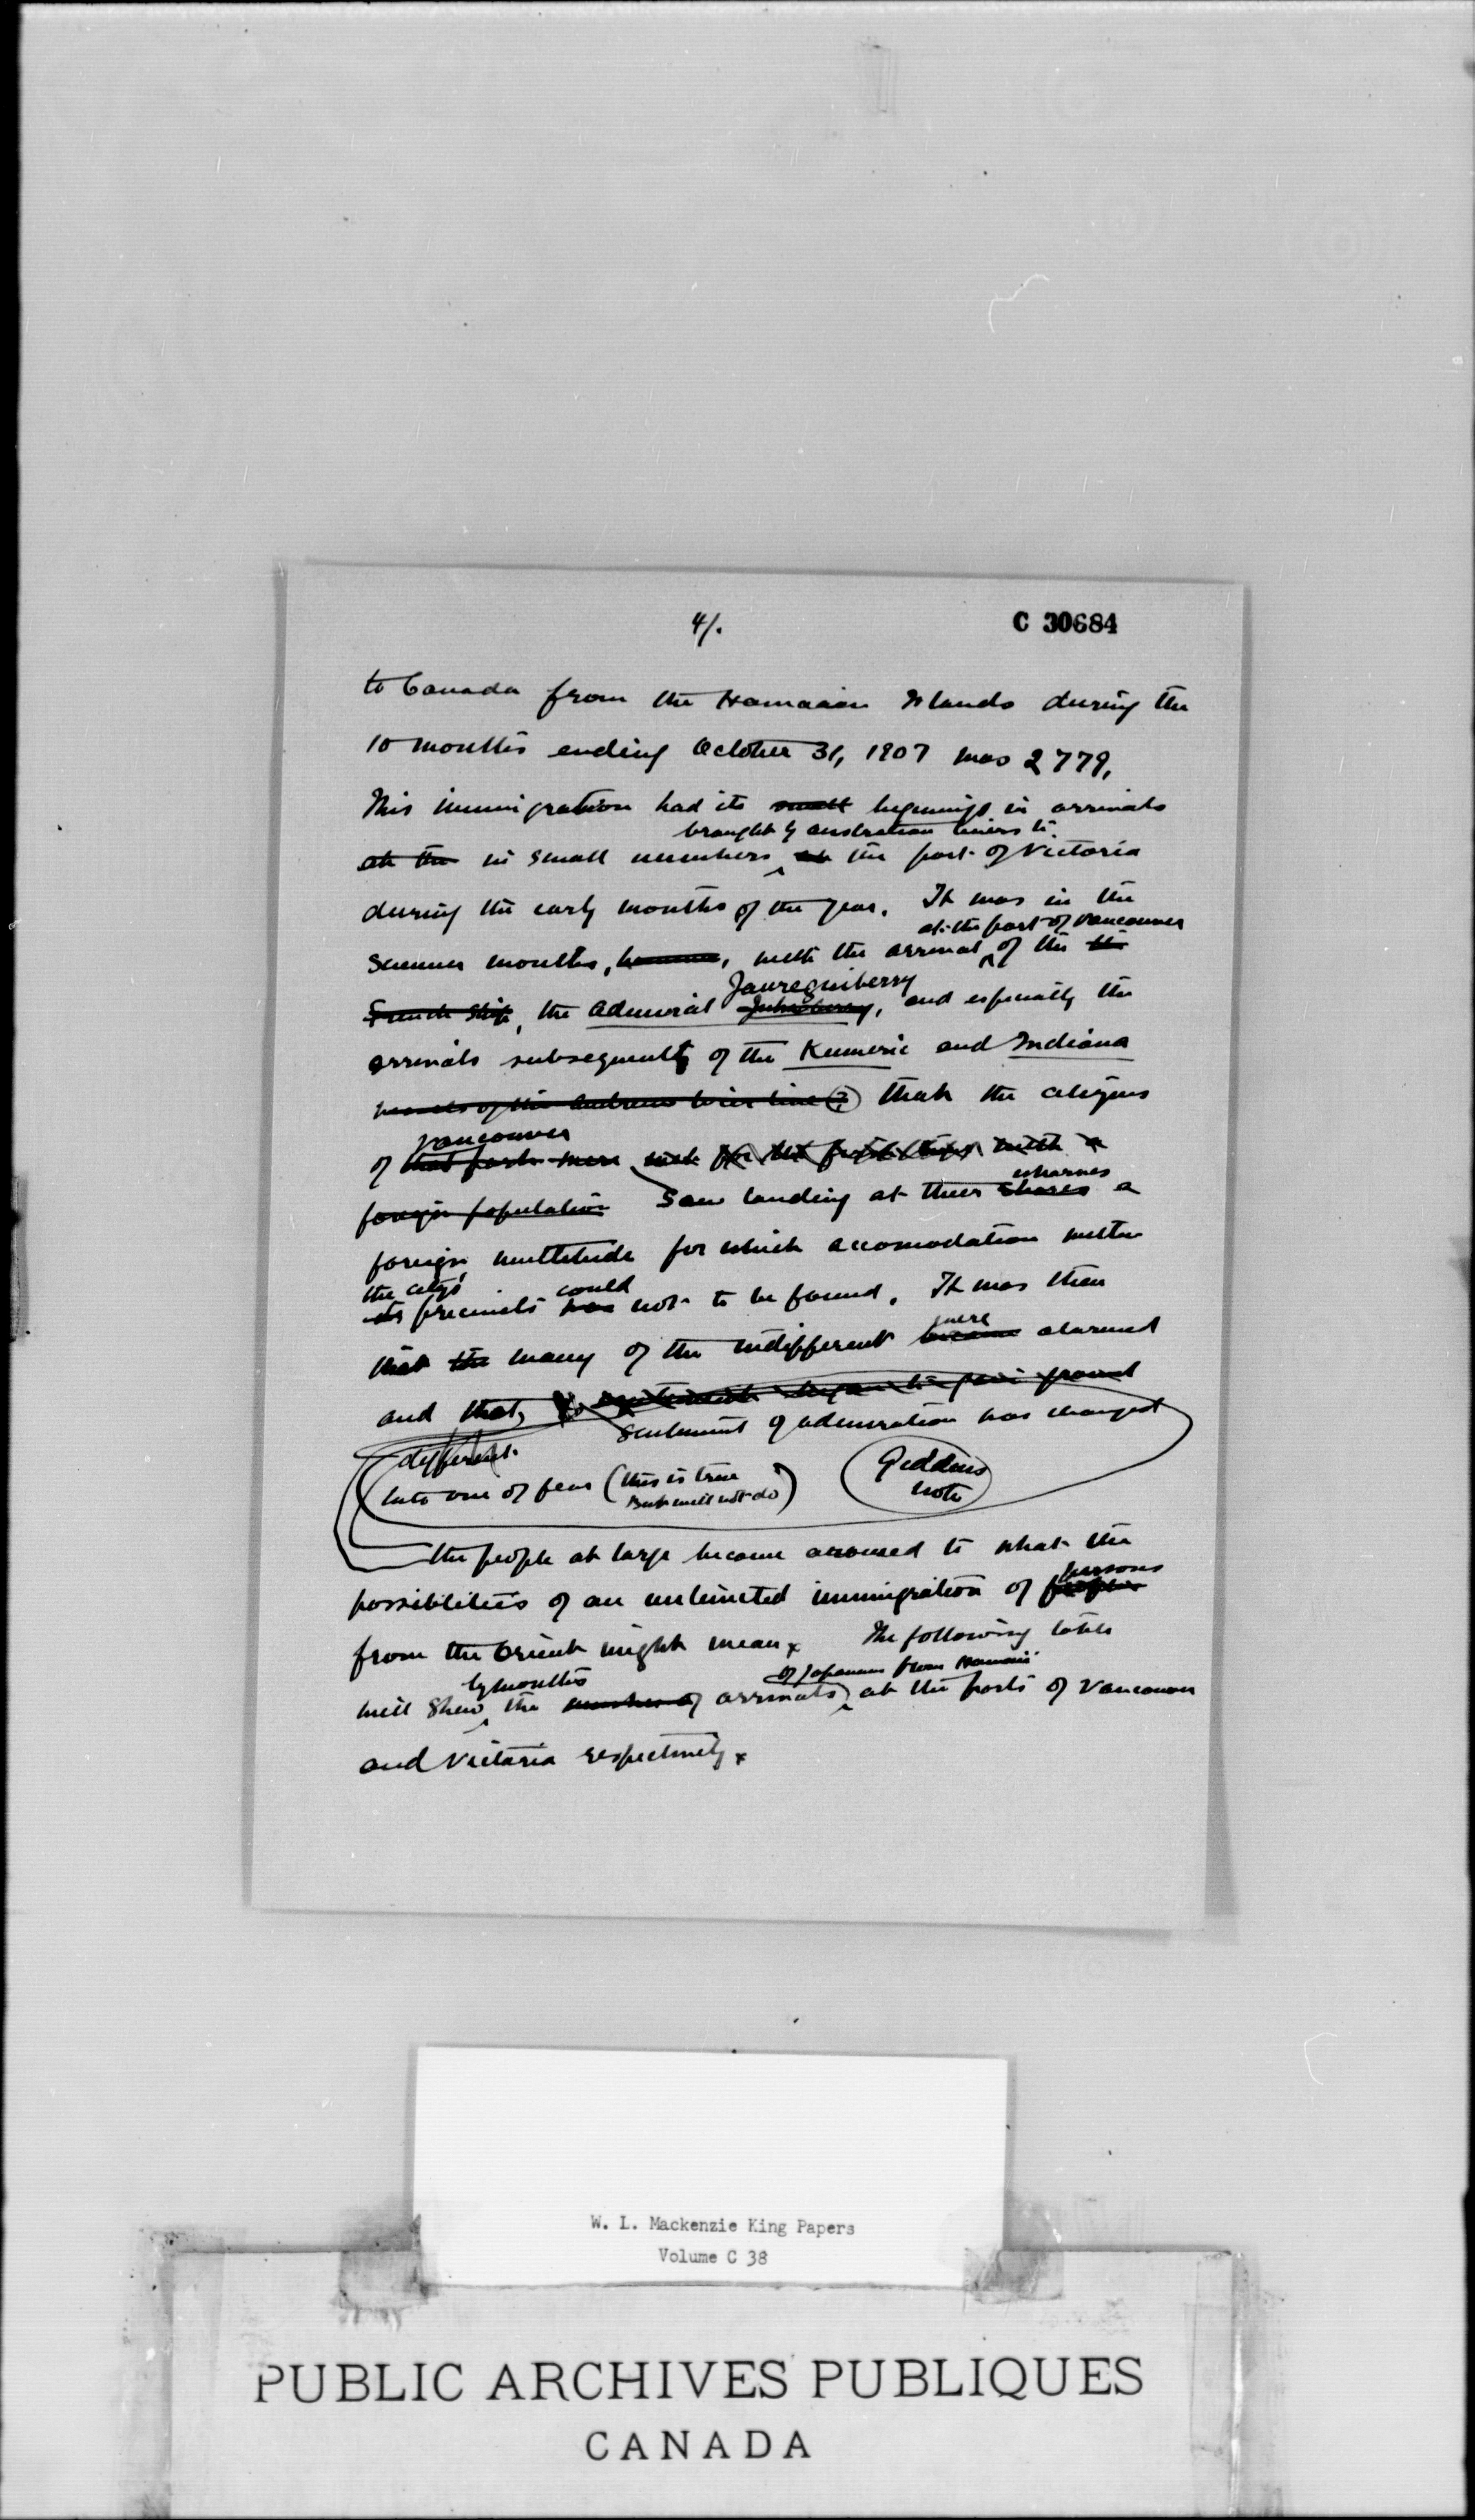 4/.
C 30684
to Canada from the Hawaiian Islands during the
10 months ending October 31, 1907 was 2779,
This immigration had its small beginnings in arrivals
brought by Australian liners to
at the in small numbers at the port of Victoria
during the early months of the year. It was in the
at the port of Vancouver
summer months, however, with the arrival of the the
Jaureguiberry
French ship, the Admiral, and especially the
arrivals subsequently of the Kumeric and Indiana
vessels of the line (?) that the citizens
Vancouver
of that port were with a
wharves
foreign population saw landing at their shores a
foreign multitude for which accomodation within
the city's could
its precincts was not to be found. It was then
were
that the many of the indifferent became alarmed
and that, began to gain ground
sentiment of admiration was changed
different
into one of fear (this is true
but will not do)
Giddens
note
the people at large became aroused to what the
persons
possiblities of an unlimited immigration of peoples
from the Orient might mean x The following table
by months of Japanese from Hawaii
will shew the number of arrivals at the ports of Vancouver
and Victoria respectively x
W. L. Mackenzie King Papers
Volume C 38
PUBLIC ARCHIVES PUBLIQUES
CANADA